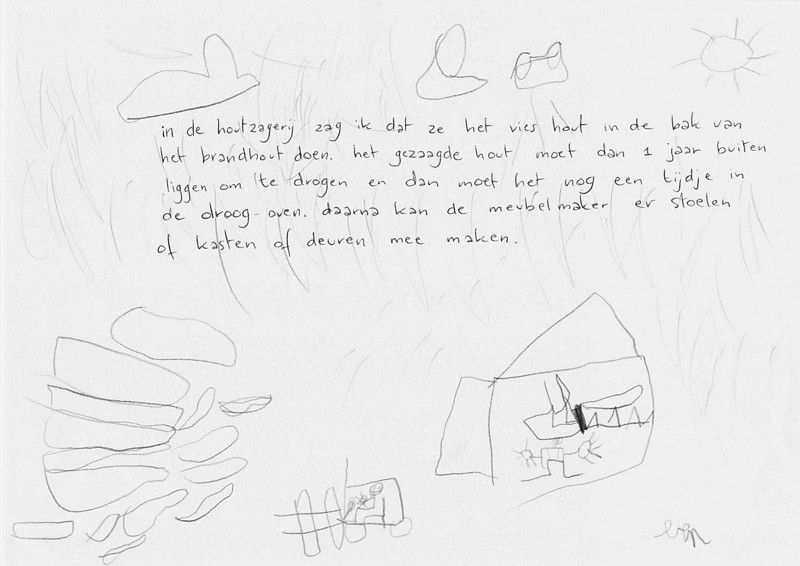 in de houtzagerij zag ik dat ze het vies hout in de bak van
het brandhout doen. het gezaagde hout moet dan 1 jaar buiten
liggen om te drogen en dan moet het nog een tijdje in
de droog-oven. daarna kan de meubelmaker er stoelen
of kasten of deuren mee maken.